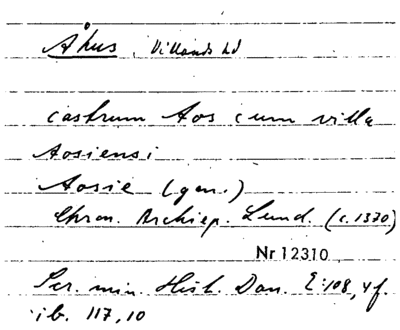 Åhus, Villands hd
castrum Aos cum villa
Aosiensi
Aosie (gen.)
Chron. Archiep. Lund. (c. 1370)
Nr 12310
Scr. min. Hist. Dan. II:108, 4 f.
ib. 117, 10